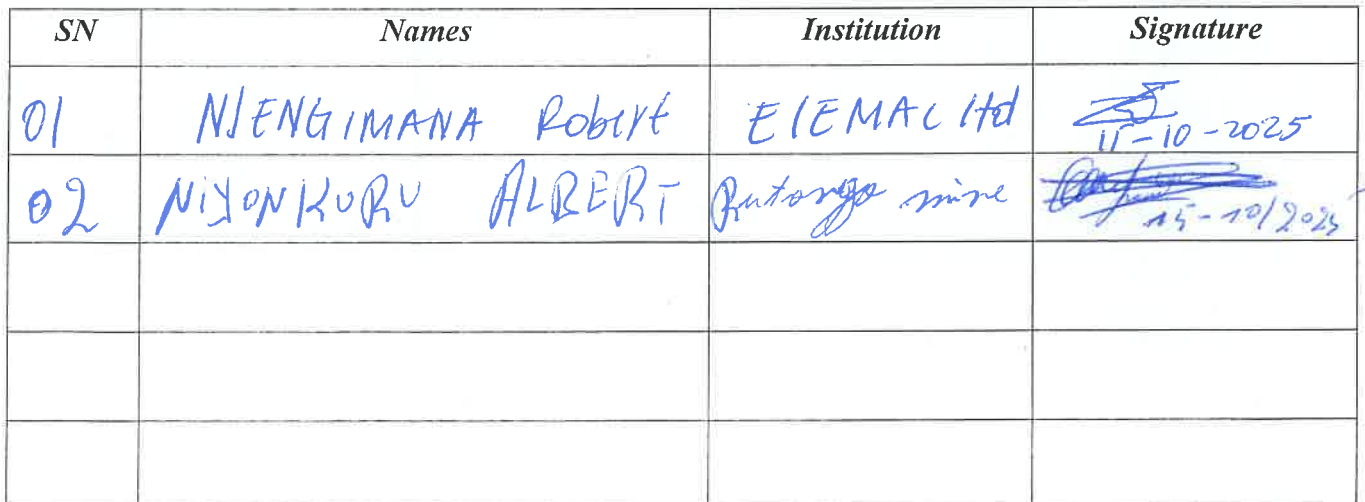 SN Names Institution Signature
01 NJENGIMANA Robert ELEMAC ltd
11-10-2025
02 NIYONKURU ALBERT Rutongo mine
15-10/2025